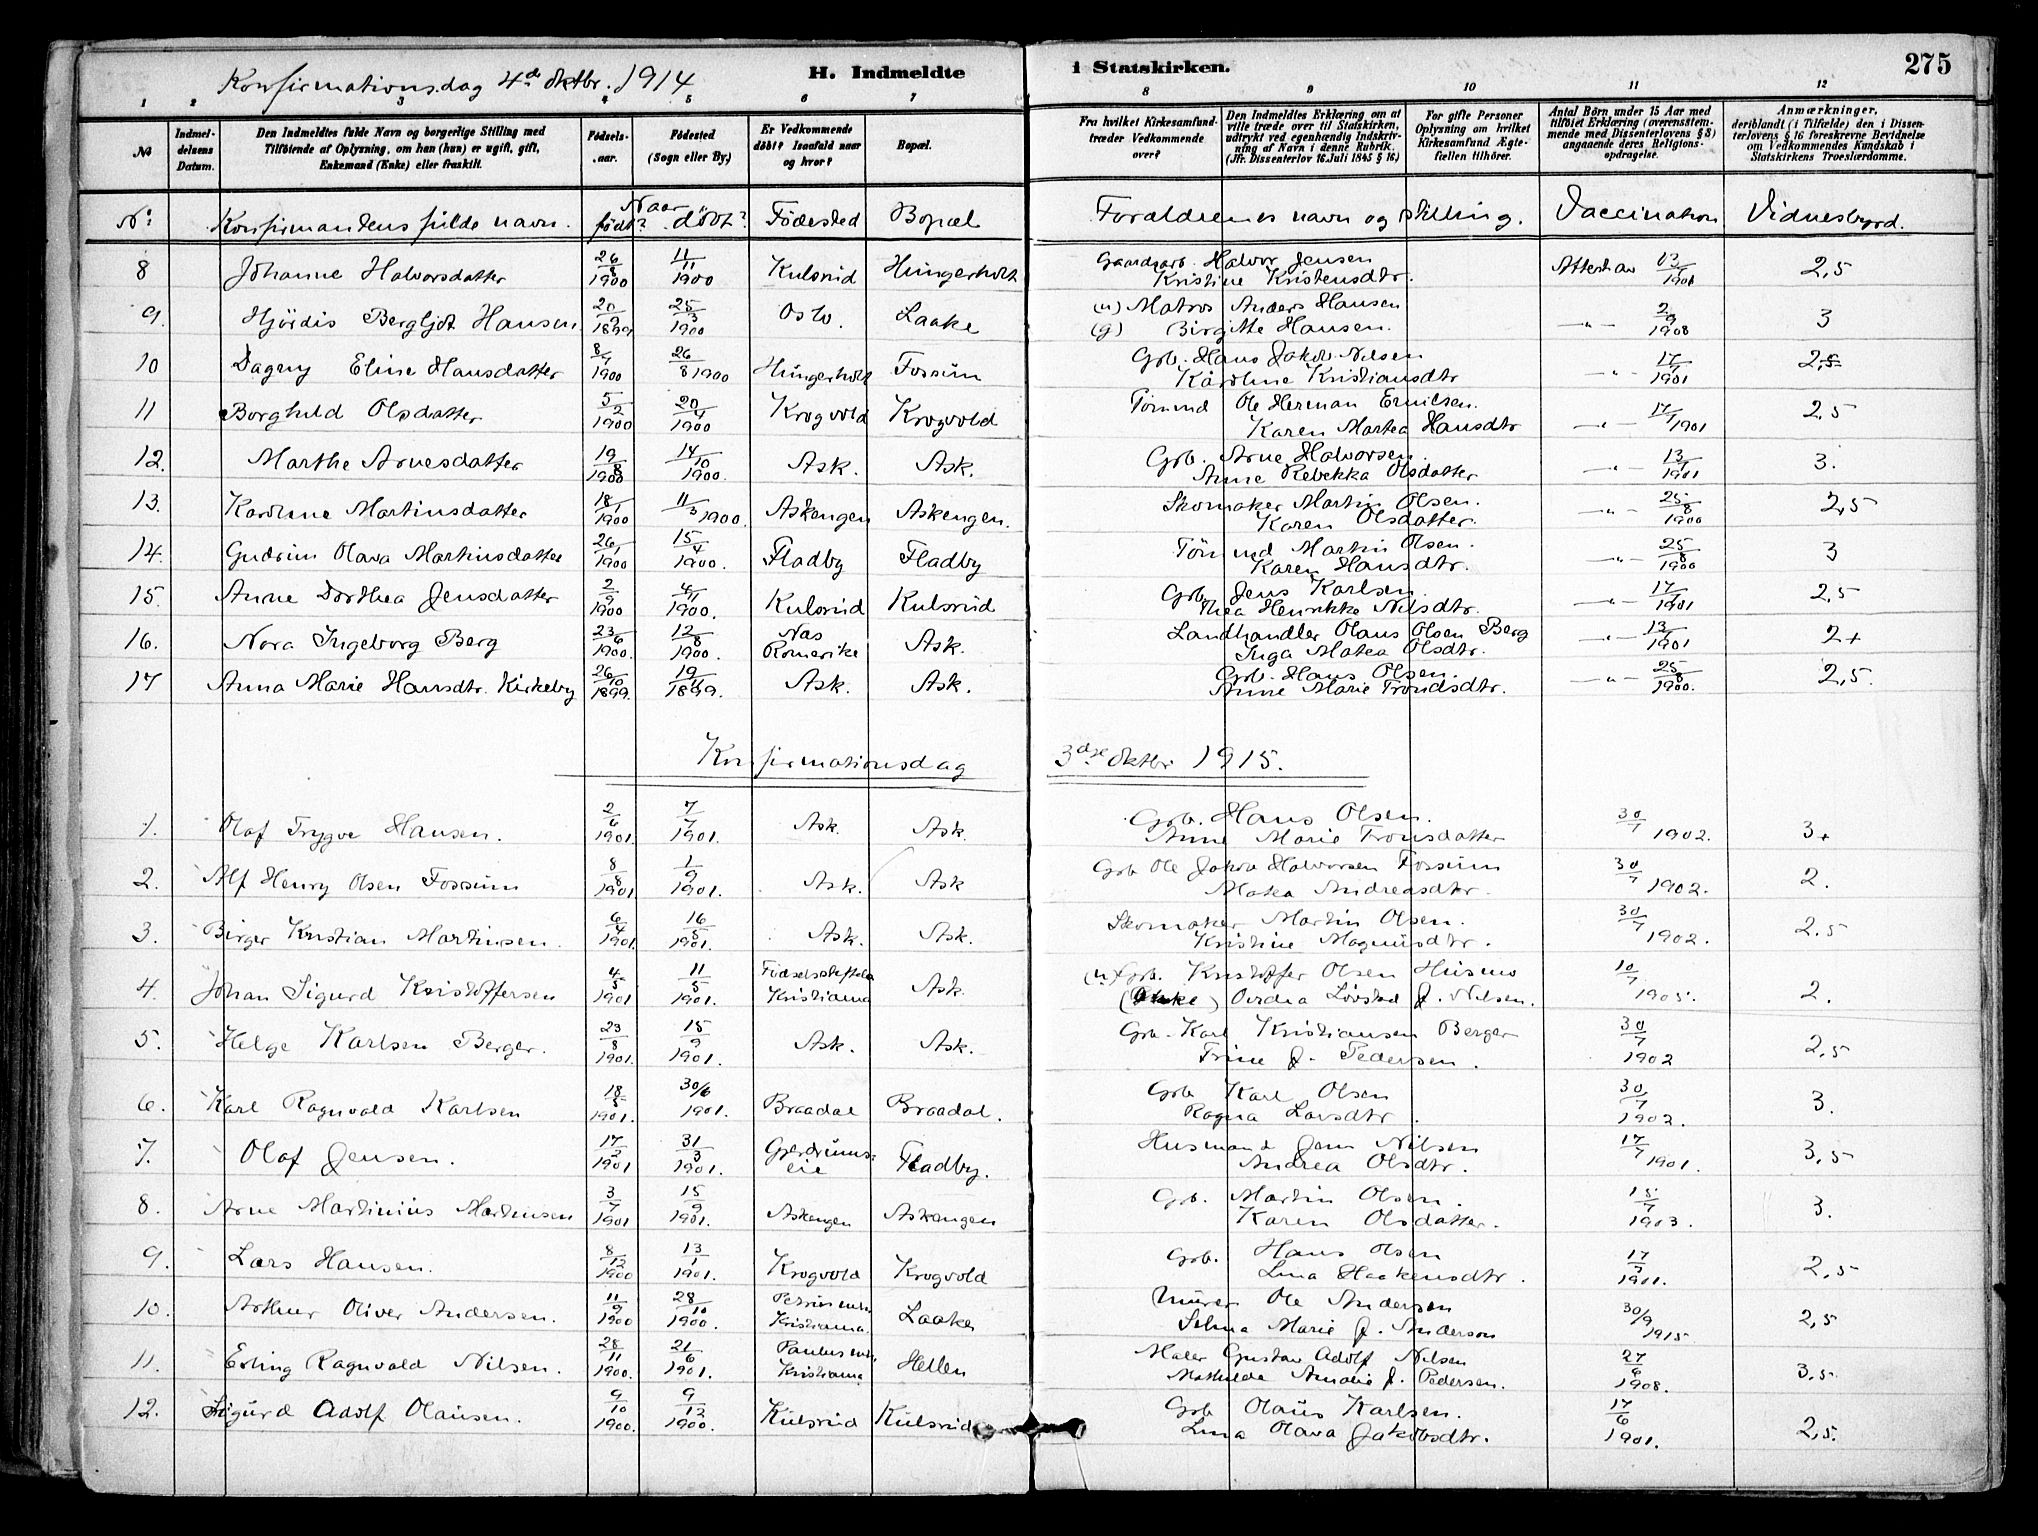 Konfirmationsdag 4de Oktbr. 1914
H. Indmeldte i Statskirken.
275
1 2 3 4 5 6 7 8 9 10 11 12
No
Indmeldelsens Datum.
Den Indmeldtes fulde Navn og borgerlige Stilling med Tilføiende af Oplysning, om han (hun) er ugift, gift, Enkemand (Enke) eller fraskilt.
Fødselsaar.
Fødested (Sogn eller By.)
Er Vedkommende døbt? Isaafald naar og hvor?
Bopæl.
Fra hvilket Kirkesamfund træder Vedkommende over?
Den Indmeldtes Erklæring om at ville træde over til Statskirken, udtrykt ved egenhændig Indskrivning af Navn i denne Rubrik. (Jfr. Dissenterlov 16 Juli 1845 § 16.)
For gifte Personer Oplysning om hvilket Kirkesamfund Ægtefællen tilhører.
Antal Børn under 15 Aar med tilføiet Erklæring (overensstemmende med Dissenterlovens § 8) angaaende deres Religionsopdragelse.
Anmærkninger, deriblandt (i Tilfælde) den i Dissenterlovens § 16 foreskrevne Bevidnelse om Vedkommendes Kundskab i Statskirkens Troeslærdomme.
No: Konfirmandens fulde navn. Naar født? døbt? Fødested Bopæl Forældrenes navn og stilling. Vaccination Vidnesbyrd.
8 Johanne Halvorsdatter 26/8 1900 4/11 1900 Kulsrud Hungerholt Halvor Jensen Kristine Kristensdtr. 1901 2,5
9. Hjördis Bergljot Hansen 1899 25/3 1900 Oslo. Laake (u) Matros Anders Hansen (g) Birgitte Hansen. —"— 2/9 1908 3
10 Dagny Eline Hansdatter 8/1 1900 26/8 1900 Hungerholt Fossum Grb. Hans Jakob Nilsen Karoline Kristiansdtr —"— 17/7 1901 2,5
11 Borghild Olsdatter 5/2 1900 20/4 1900 Krogvold Krogvold Tömmd Ole Herman Emilsen. Karen Martea Hansdtr —"— 17/7 1901 2,5
12. Marthe Arnesdatter 19/8 1900 14/10 1900. Ask. Ask. Grb. Arne Halvorsen. Anne Rebekka Olsdatter —"— 13/7 1901 3.
13. Karoline Martinsdatter 18/1 1900 11/3 1900. Askengen Askengen. Skomaker Martin Olsen. Karen Olsdatter. —"— 25/8 1900 2,5
14. Gudrun Olava Martinsdatter 26/1 1900 15/4 1900. Fladby Fladby Tömmd Martin Olsen. Karen Hansdtr. —"— 25/8 1900 3
15. Anne Dorthea Jensdatter 2/9 1900 4/11 1900. Kulsrud Kulsrud Grb. Jens Karlsen. Thea Henrikke Nilsdtr. —"— 17/7 1901 2,5
16. Nora Ingeborg Berg 23/6 1900. 12/8 1900. Nas Romerike Ask. Landhandler Olaus Olsen Berg Inga Matea Olsdtr. —"— 13/7 1901 2+
17 Anna Marie Hansdtr. Kirkeby 26/10 1899. 19/11 1899. Ask. Ask. Grb. Hans Olsen. Anne Marie Trondsdtr. —"— 25/8 1900. 2,5
Konfirmationsdag 3dje Oktbr 1915.
1. Olaf Trygve Hansen. 2/6 1901. 7/7 1901. Ask. Ask. Grb. Hans Olsen. Anne Marie Tronsdatter 30/7 1902. 3+
2. Alf Henry Olsen Fossum 8/8 1901 1/9 1901. Ask. Ask Grb Ole Jakob Halvorsen Fossum Matea Andreasdtr. 30/7 1902. 2.
3. Birger Kristian Martinsen. 6/4 1901. 16/5 1901. Ask. Ask. Skomaker Martin Olsen. Kristine Magnusdtr. 30/7 1902. 2.5
4. Johan Sigurd Kristoffersen 4/3 1901 11/5 1901. Födselsstiftelse Kristiania Ask. (u) Grb. Kristoffer Olsen Husmo (Enke) Ovidia Lövstad f. Nilsen. 10/7 1905. 2.
5. Helge Karlsen Berger. 23/8 1901. 15/9 1901. Ask. Ask. Grb. Karl Kristiansen Berger Trine f. Pedersen. 30/7 1902 2,5
6. Karl Ragnvald Karlsen 18/5 1901. 30/6 1901. Braadal Braadal. Grb Karl Olsen Ragna Larsdtr. 30/7 1902. 3.
7. Olaf Jensen. 17/2 1901 31/3 1901. Gjerdrumseie Fladby. Husmand Jens Nilsen Andrea Olsdtr. 17/7 1901. 3,5
8. Arne Martinius Martinsen 3/7 1901 15/9 1901. Askengen Askengen Grb. Martin Olsen. Karen Olsdatter. 15/7 1903. 3.
9. Lars Hansen. 8/12 1900 13/1 1901. Krogvold Krogvold Grb. Hans Olsen Lina Haakensdtr. 17/7 1901. 2,5
10. Arthur Oliver Andersen. 11/9 1900 28/10 1900. Petrus mh. Kristiania. Laake Murer Ole Andersen Selma Marie f. Anderson 30/9 1915. 2,5
11. Erling Ragnvald Nilsen. 28/11 1900. 21/6 1901. Paulus mh. Kristiania Hellen Maler Gustav Adolf Nilsen Mathilde Amalie f. Pedersen. 27/6 1908. 3,5
12. Sigurd Adolf Olausen. 9/10 1900. 9/12 1900. Kulsrud Kulsrud Grb Olaus Karlsen. Lina Olava Jakobsdtr. 17/6 1901. 2,5.